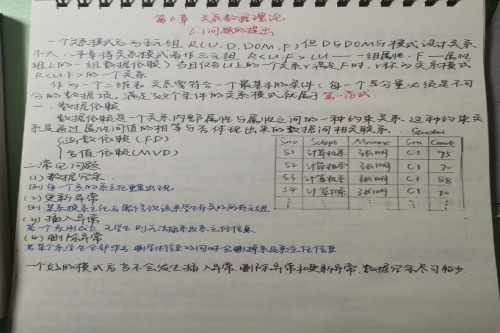 第6章 关系数据理论
6.1 问题的提出
一个关系模式应为五元组,R(U,D,DOM,F)但D与DOM与模式设计关系
不大,本章将关系模式看作三元组,R<U,F>(U——一组属性,F——属性
组上的一组数据依赖)当且仅当U上的一个关系r满足F时,r称为关系模式
R<U,F>的一个关系
作为一个二维表,关系要符合一个最基本的条件:每一个分量必须是不可
分的数据项,满足这个条件的关系模式就属于第一范式
一.数据依赖
数据依赖是一个关系内部属性与属性之间的一种约束关系,这种约束关
系是通过属性间值的相等与否体现出来的数据间相关联系. Student
函数依赖(FD)
多值依赖(MVD)
Sno Sdept Mname Cno Grade
S1 计算机系 张明 C1 95
S2 计算机系 张明 C1
S3 计算机系 张明 C1 88
S4 计算机系 张明 C1
二.常见问题
(1)数据冗余
例)每一个系的系主任重复出现
(2)更新异常
例)某系换系主任后需修改该系学生有关的所有元组
(3)插入异常
若一个系刚成立,无学生则无法插系及系主任信息
(4)删除异常
若某个系学生全部毕业,删学生信息的同时会删掉系及系主任信息
一个好的模式应当不会发生插入异常、删除异常和更新异常,数据冗余尽可能少.